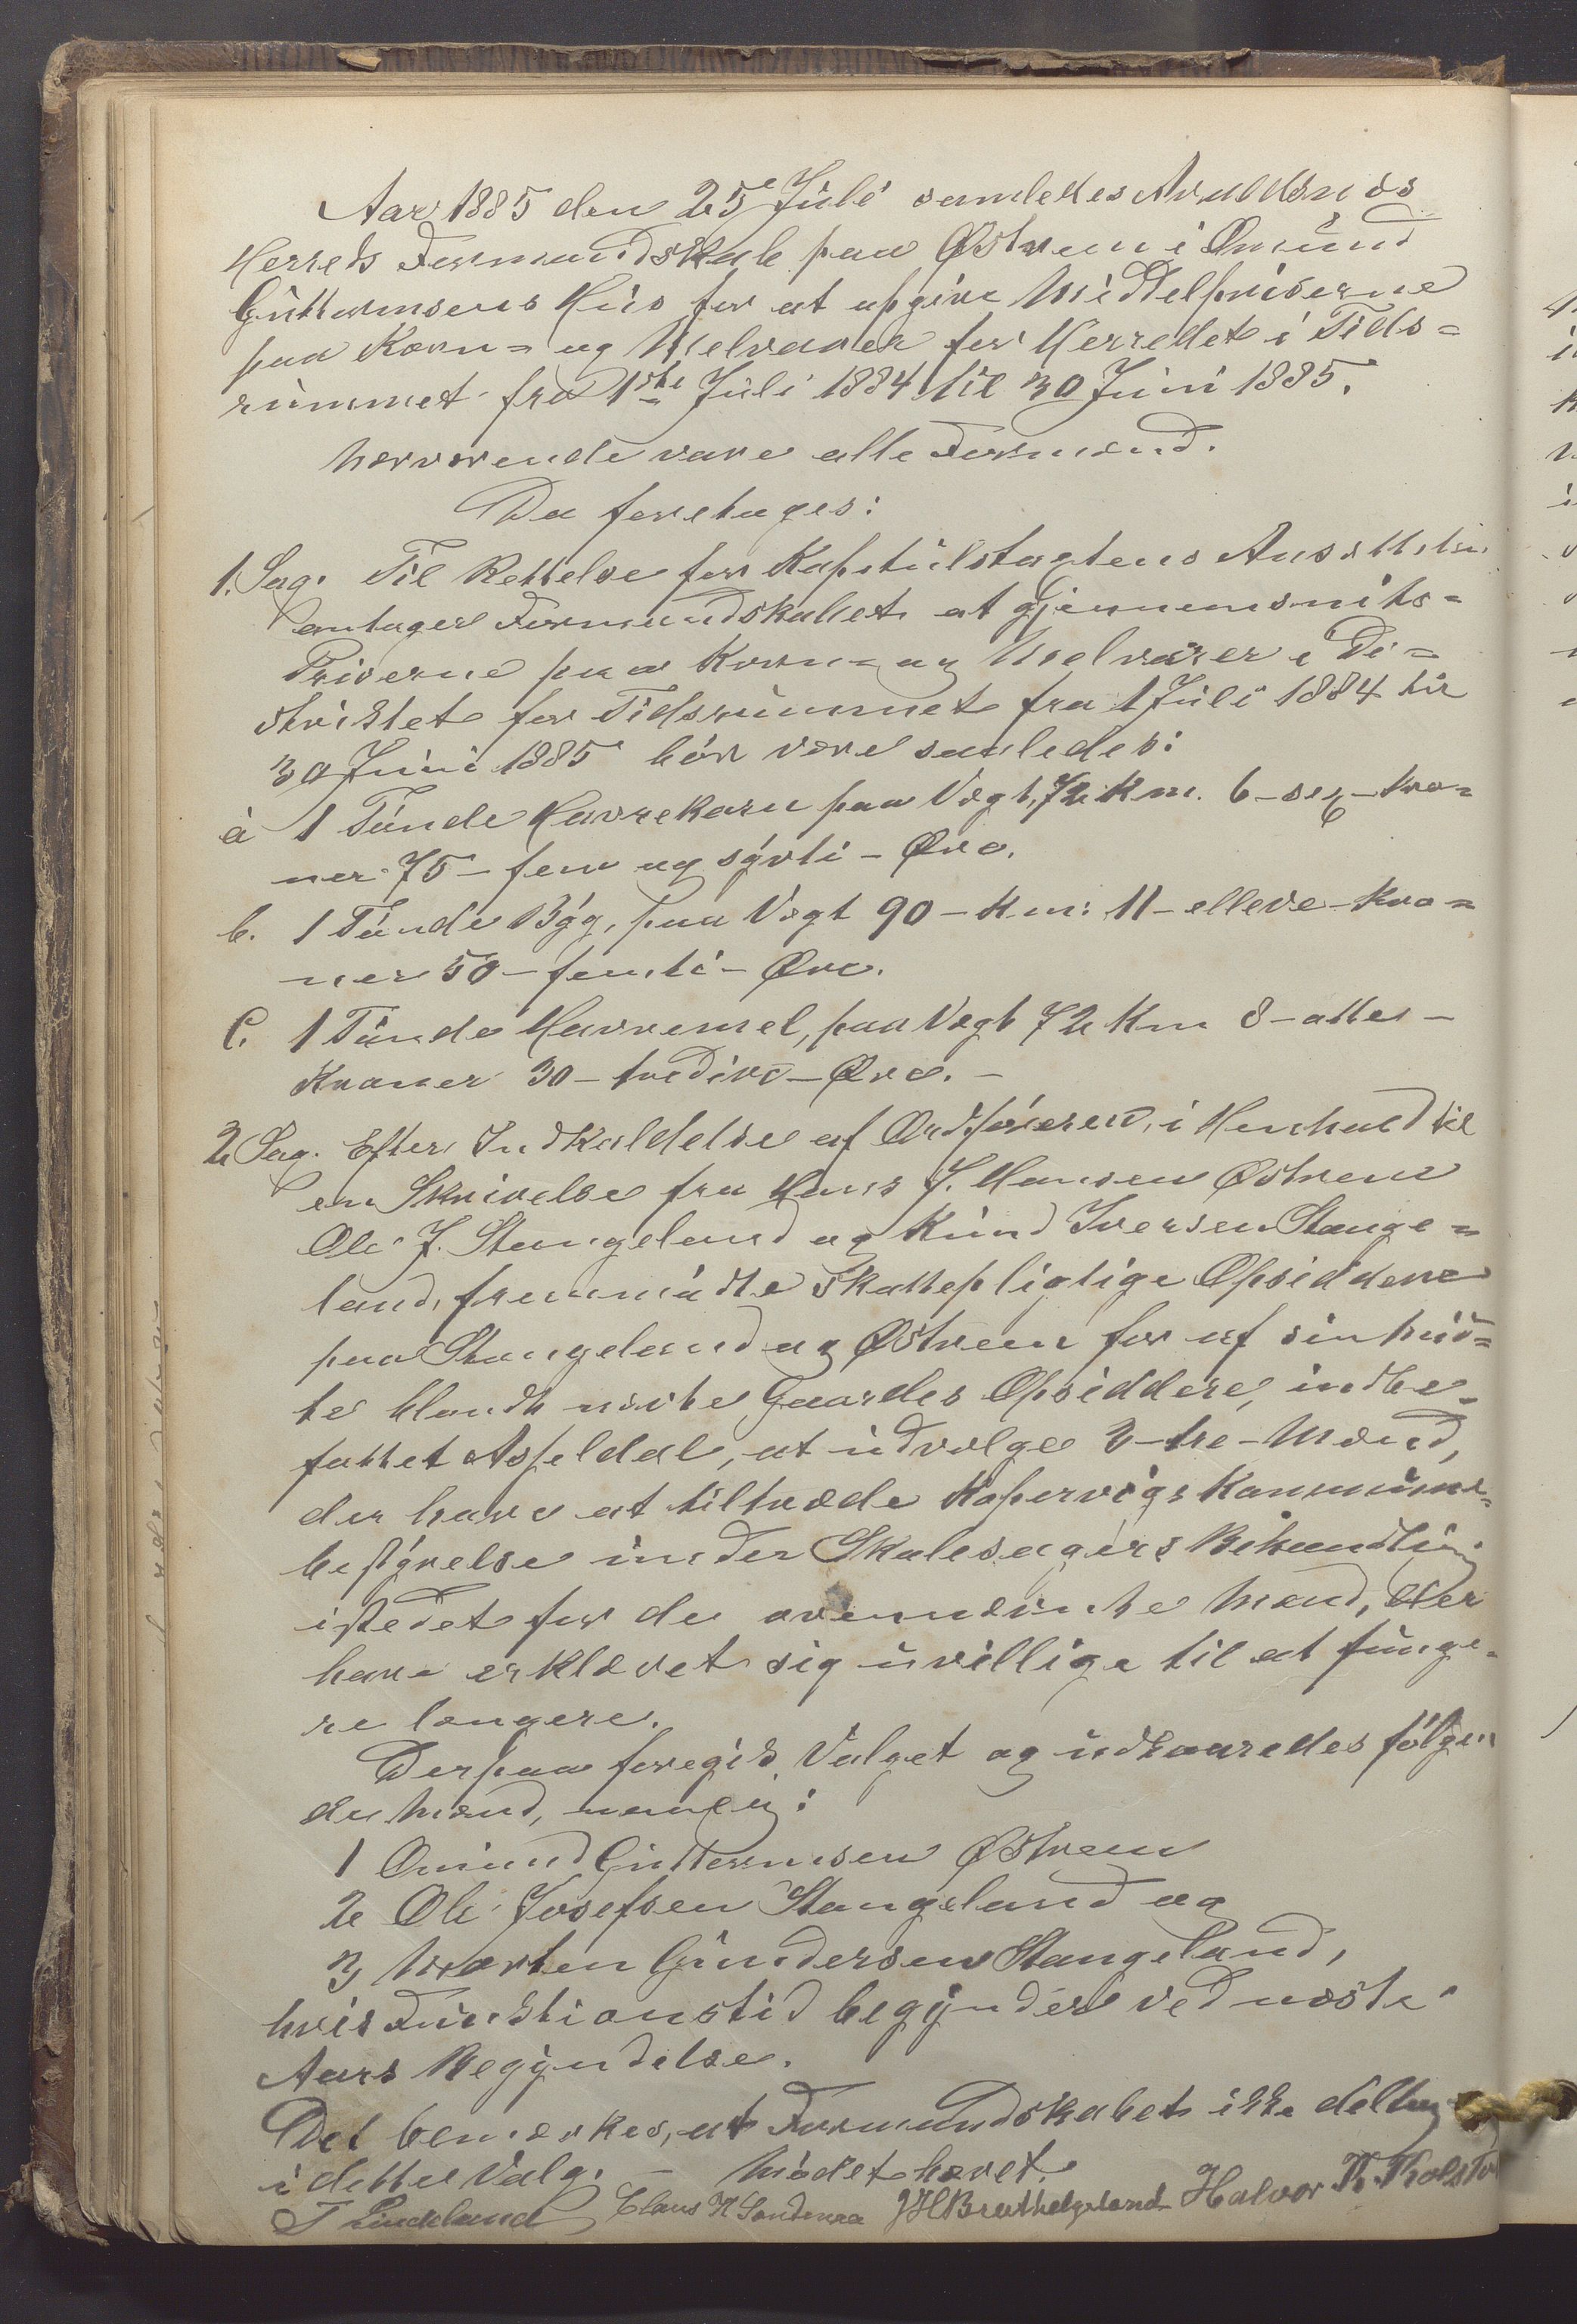 Aar 1885 den 25e Juli samledes Avaldsnæs
Herreds Formandskab paa Østrem i Omund
Guttormsens Hus for at opgive Middelpriserne
paa Korn- og Melvarer for Herredet i Tids-
rummet fra 1ste Juli 1884 til 30 Juni 1885.
Nærværende vare alle Formænd.
Da foretages:
1. Sag. Til Rettelse for Kapitulstagtens Ansættelse
antager Formandskabet at gjennemsnits-
Priserne paa Korn- og Melvarer i Di-
striktet for Tidsrummet fra 1 Juli 1884 til
30 Juni 1885 bør være saaledes:
a 1 Tønde Havrekorn paa Vægt, 72 Km. 6 - sex - Kro-
ner 75 - fem og sytti - Øre.
b. 1 Tønde Byg, paa Vægt 90 - Km: 11 - elleve - Kro-
ner 50 - femti - Øre.
C. 1 Tønde Havremel, paa Vægt 72 Km 8 - otte -
Kroner 30 - tredive - Øre. -
2 Sag. Efter Indkaldelse af Ordføreren, i Henhold til
en Skrivelse fra Hans J. Hansen Østrem
Ole J. Stangeland og Knud Iversen Stange-
land, fremmødte skattepligtige Opsiddere
paa Stangeland og Østrem for af sin
te blandt nævte Gaardes Opsiddere, indbe-
fattet Aspeldal, at udvælge 3 - tre - Mænd,
der have at tiltræde Kopervigs Kommune-
bestyrelse under Skolesagers Behandling
istedet for de ovennævnte Mænd, der
have erklæret sig uvillige til at funge-
re længere.
Derpaa foregik Valget og udkaaredes følgen
de Mænd, nemlig:
1 Omund Guttormsen Østrem
2 Ole Josefsen Stangeland og
3 Morten Gundersen Stangeland,
hvis Funktionstid begynder ved næste
Aars Begyndelse.
Det bemærkes, at Formandskabet ikke deltog
i dette Valg. - Mødet hævet.
T Lindeland Claus H Sandenea JH Bratthelgeland Halvor Th.